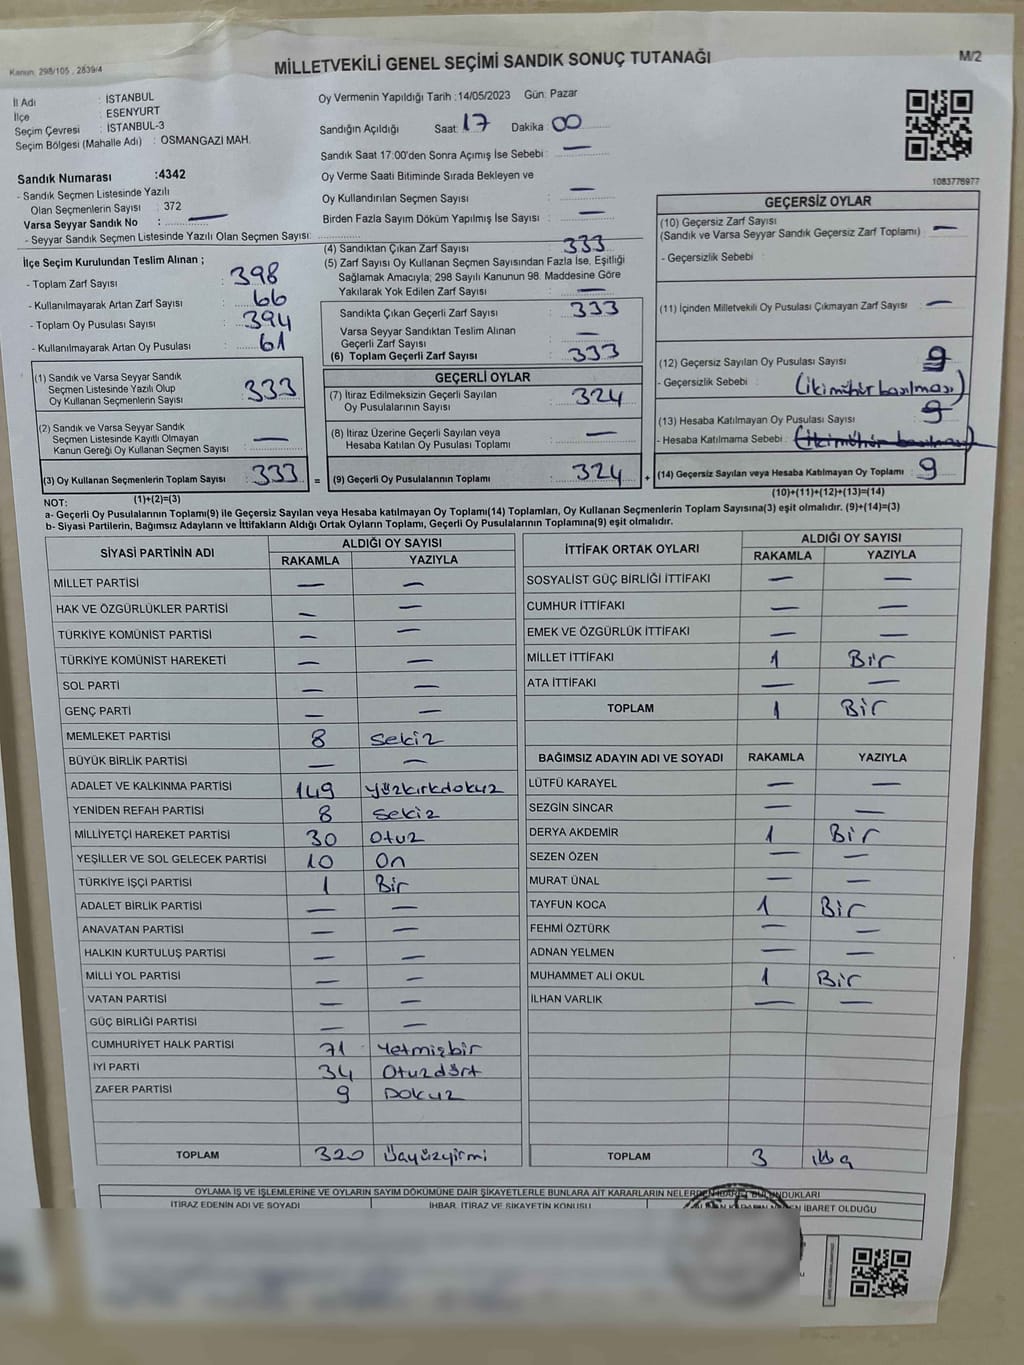 Kanun: 298/105 , 2839/4
MİLLETVEKİLİ GENEL SEÇİMİ SANDIK SONUÇ TUTANAĞI
M/2
İl Adı : İSTANBUL
İlçe : ESENYURT
Seçim Çevresi : İSTANBUL-3
Seçim Bölgesi (Mahalle Adı) : OSMANGAZİ MAH.
Sandık Numarası :4342
- Sandık Seçmen Listesinde Yazılı
Olan Seçmenlerin Sayısı : 372
Varsa Seyyar Sandık No : —
- Seyyar Sandık Seçmen Listesinde Yazılı Olan Seçmen Sayısı:
İlçe Seçim Kurulundan Teslim Alınan ;
- Toplam Zarf Sayısı : 398
- Kullanılmayarak Artan Zarf Sayısı : 66
- Toplam Oy Pusulası Sayısı : 394
- Kullanılmayarak Artan Oy Pusulası : 61
(1) Sandık ve Varsa Seyyar Sandık
Seçmen Listesinde Yazılı Olup
Oy Kullanan Seçmenlerin Sayısı : 333
(2) Sandık ve Varsa Seyyar Sandık
Seçmen Listesinde Kayıtlı Olmayan
Kanun Gereği Oy Kullanan Seçmen Sayısı : —
(3) Oy Kullanan Seçmenlerin Toplam Sayısı : 333 =
(1)+(2)=(3)
Oy Vermenin Yapıldığı Tarih :14/05/2023 Gün: Pazar
Sandığın Açıldığı Saat: 17 Dakika 00
Sandık Saat 17:00'den Sonra Açımış İse Sebebi : —
Oy Verme Saati Bitiminde Sırada Bekleyen ve
Oy Kullandırılan Seçmen Sayısı : —
Birden Fazla Sayım Döküm Yapılmış İse Sayısı : —
(4) Sandıktan Çıkan Zarf Sayısı : 333
(5) Zarf Sayısı Oy Kullanan Seçmen Sayısından Fazla İse, Eşitliği
Sağlamak Amacıyla; 298 Sayılı Kanunun 98. Maddesine Göre
Yakılarak Yok Edilen Zarf Sayısı : —
Sandıkta Çıkan Geçerli Zarf Sayısı : 333
Varsa Seyyar Sandıktan Teslim Alınan
Geçerli Zarf Sayısı : —
(6) Toplam Geçerli Zarf Sayısı : 333
GEÇERLİ OYLAR
(7) İtiraz Edilmeksizin Geçerli Sayılan
Oy Pusulalarının Sayısı : 324
(8) İtiraz Üzerine Geçerli Sayılan veya
Hesaba Katılan Oy Pusulası Toplamı : —
(9) Geçerli Oy Pusulalarının Toplamı : 324 +
1083776977
GEÇERSİZ OYLAR
(10) Geçersiz Zarf Sayısı : —
(Sandık ve Varsa Seyyar Sandık Geçersiz Zarf Toplamı)
- Geçersizlik Sebebi :
(11) İçinden Milletvekili Oy Pusulası Çıkmayan Zarf Sayısı : —
(12) Geçersiz Sayılan Oy Pusulası Sayısı : 9
- Geçersizlik Sebebi : (iki mühür basılması)
(13) Hesaba Katılmayan Oy Pusulası Sayısı : 9
- Hesaba Katılmama Sebebi : (iki mühür basılması)
(14) Geçersiz Sayılan veya Hesaba Katılmayan Oy Toplamı : 9
(10)+(11)+(12)+(13)=(14)
NOT:
a- Geçerli Oy Pusulalarının Toplamı(9) ile Geçersiz Sayılan veya Hesaba katılmayan Oy Toplamı(14) Toplamları, Oy Kullanan Seçmenlerin Toplam Sayısına(3) eşit olmalıdır. (9)+(14)=(3)
b- Siyasi Partilerin, Bağımsız Adayların ve İttifakların Aldığı Ortak Oyların Toplamı, Geçerli Oy Pusulalarının Toplamına(9) eşit olmalıdır.
SİYASİ PARTİNİN ADI ALDIĞI OY SAYISI
RAKAMLA YAZIYLA
MİLLET PARTİSİ — —
HAK VE ÖZGÜRLÜKLER PARTİSİ — —
TÜRKİYE KOMÜNİST PARTİSİ — —
TÜRKİYE KOMÜNİST HAREKETİ — —
SOL PARTİ — —
GENÇ PARTİ — —
MEMLEKET PARTİSİ 8 sekiz
BÜYÜK BİRLİK PARTİSİ — —
ADALET VE KALKINMA PARTİSİ 149 yüzkırkdokuz
YENİDEN REFAH PARTİSİ 8 sekiz
MİLLİYETÇİ HAREKET PARTİSİ 30 Otuz
YEŞİLLER VE SOL GELECEK PARTİSİ 10 On
TÜRKİYE İŞÇİ PARTİSİ 1 Bir
ADALET BİRLİK PARTİSİ — —
ANAVATAN PARTİSİ — —
HALKIN KURTULUŞ PARTİSİ — —
MİLLİ YOL PARTİSİ — —
VATAN PARTİSİ — —
GÜÇ BİRLİĞİ PARTİSİ — —
CUMHURİYET HALK PARTİSİ 71 Yetmişbir
İYİ PARTİ 34 Otuzdört
ZAFER PARTİSİ 9 Dokuz
TOPLAM 320 Üçyüzyirmi
İTTİFAK ORTAK OYLARI ALDIĞI OY SAYISI
RAKAMLA YAZIYLA
SOSYALİST GÜÇ BİRLİĞİ İTTİFAKI — —
CUMHUR İTTİFAKI — —
EMEK VE ÖZGÜRLÜK İTTİFAKI — —
MİLLET İTTİFAKI 1 Bir
ATA İTTİFAKI — —
TOPLAM 1 Bir
BAĞIMSIZ ADAYIN ADI VE SOYADI RAKAMLA YAZIYLA
LÜTFÜ KARAYEL — —
SEZGİN SİNCAR — —
DERYA AKDEMİR 1 Bir
SEZEN ÖZEN — —
MURAT ÜNAL — —
TAYFUN KOCA 1 Bir
FEHMİ ÖZTÜRK — —
ADNAN YELMEN — —
MUHAMMET ALİ OKUL 1 Bir
İLHAN VARLIK — —
TOPLAM 3
OYLAMA İŞ VE İŞLEMLERİNE VE OYLARIN SAYIM DÖKÜMÜNE DAİR ŞİKAYETLERLE BUNLARA AİT KARARLARIN NELERDEN İBARET BULUNDUKLARI
İTİRAZ EDENİN ADI VE SOYADI İHBAR, İTİRAZ VE ŞİKAYETİN KONUSU İBARET OLDUĞU